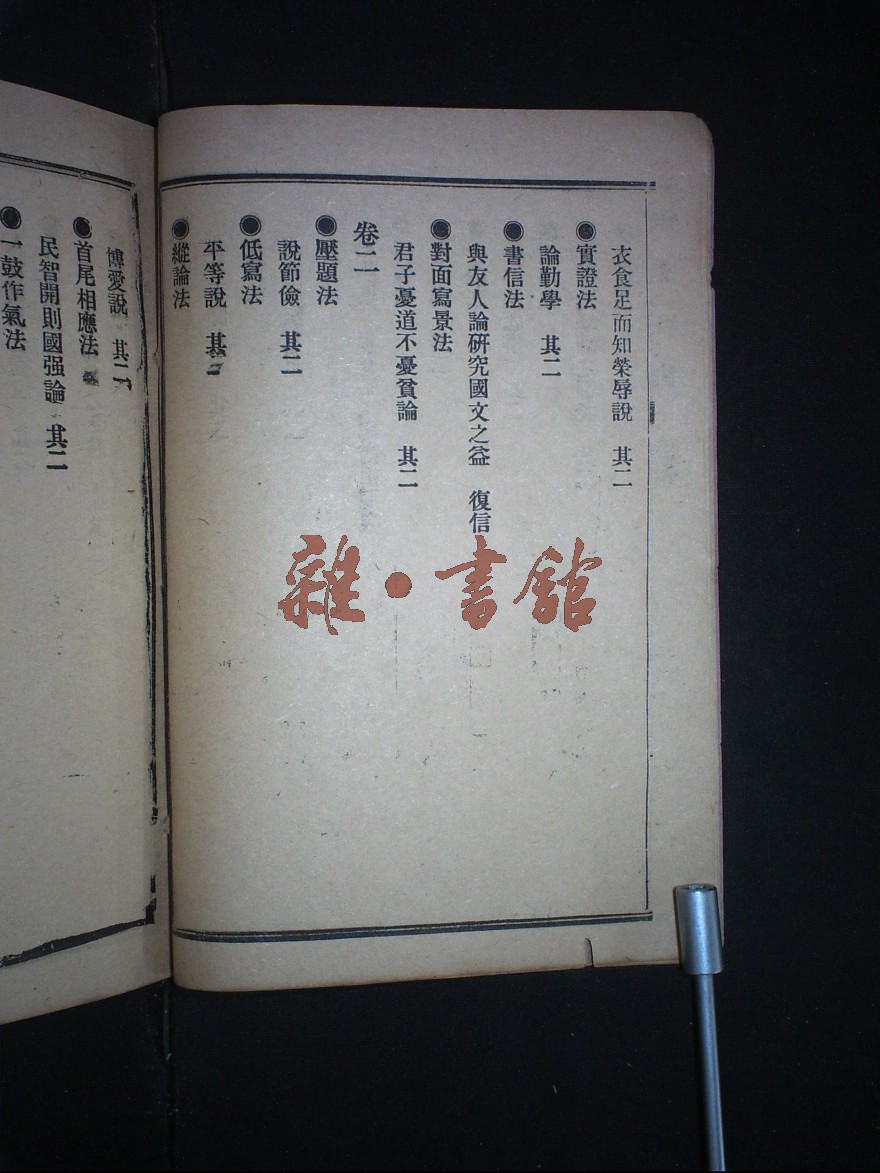 衣食足而知榮辱說　其二
●實證法
論勤學　其二
●書信法
與友人論研究國文之益　復信
●對面寫景法
君子憂道不憂貧論　其二
卷二
●壓題法
說節儉　其二
●低寫法
平等說　其二
●縱論法
博愛說　其二
●首尾相應法
民智開則國强論　其二
●一鼓作氣法
雜·書館